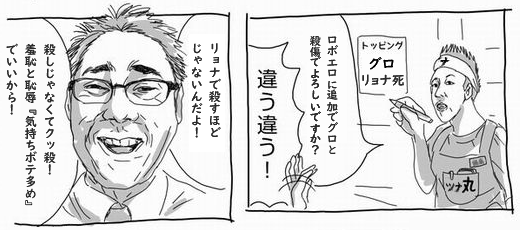 トッピング
グロ
リョナ死
ロボエロに追加でグロと
殺傷でよろしいですか？
違う違う！
ナ
ツナ丸
リョナで殺すほど
じゃないんだよ！
殺しじゃなくてクッ殺！
羞恥と恥辱『気持ちボテ多め』
でいいから！